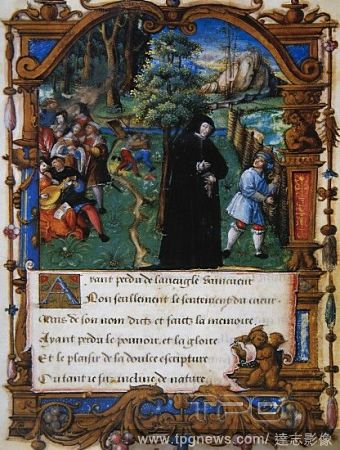 Ayant perdu de laveugle vaincueur
Non seullement le sentiment du cueur.
Mais de son nom dictz et faictz la memoire
Ayant perdu le pouvoir, et la gloire
Et le plaisir de la doulce escripture
Ou tant je fuz incline de nature,
TPG
www.tpgnews.com/ 達志影像